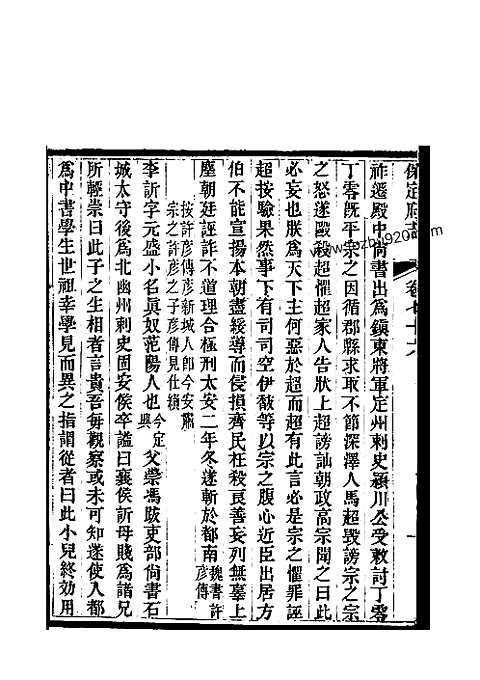 保定府志 卷七十六 一
祚遷殿中尚書出爲鎭東將軍定州刺史潁川公受敕討丁零
丁零既平宗之因循郡縣求取不節深澤人馬超毀謗宗之宗
之怒遂毆殺超懼超家人告狀上超謗訕朝政高宗聞之曰此
必妄也朕爲天下主何惡於超而超有此言必是宗之懼罪誣
超按驗果然事下有司司空伊馛等以宗之腹心近臣出居方
伯不能宣揚本朝盡綏導而侵損齊民枉殺良善妄列無辜上
塵朝廷誣詐不道理合極刑太安二年冬遂斬於都南魏書許彥傳
按許彥傳彥新城人卽今安肅
宗之許彥之子彥傳見仕績
李訢字元盛小名眞奴范陽人也今定興父崇馮跋吏部尚書石
城太守後爲北幽州刺史固安侯卒諡曰襄侯訢母賤爲諸兄
所輕崇曰此子之生相者言貴吾每觀察或未可知遂使入都
爲中書學生世祖幸學見而異之指謂從者曰此小兒終効用